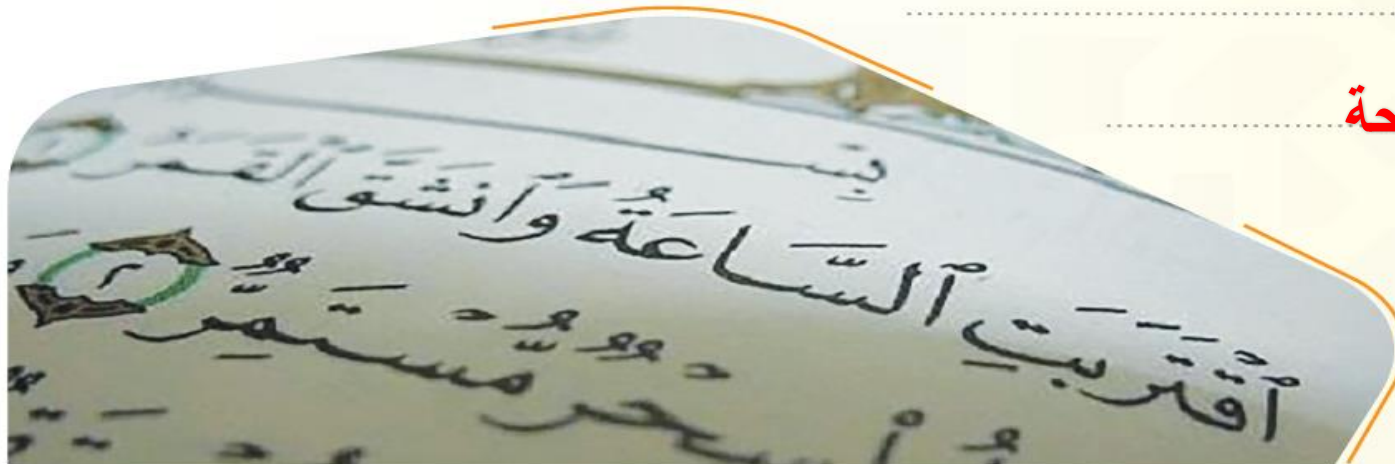 حة
بِسْـ
ٱقْتَرَبَتِ ٱلسَّاعَةُ وَٱنشَقَّ ٱلْقَمَرُ
سِحْرٌ مُّسْتَمِرٌّ ٢